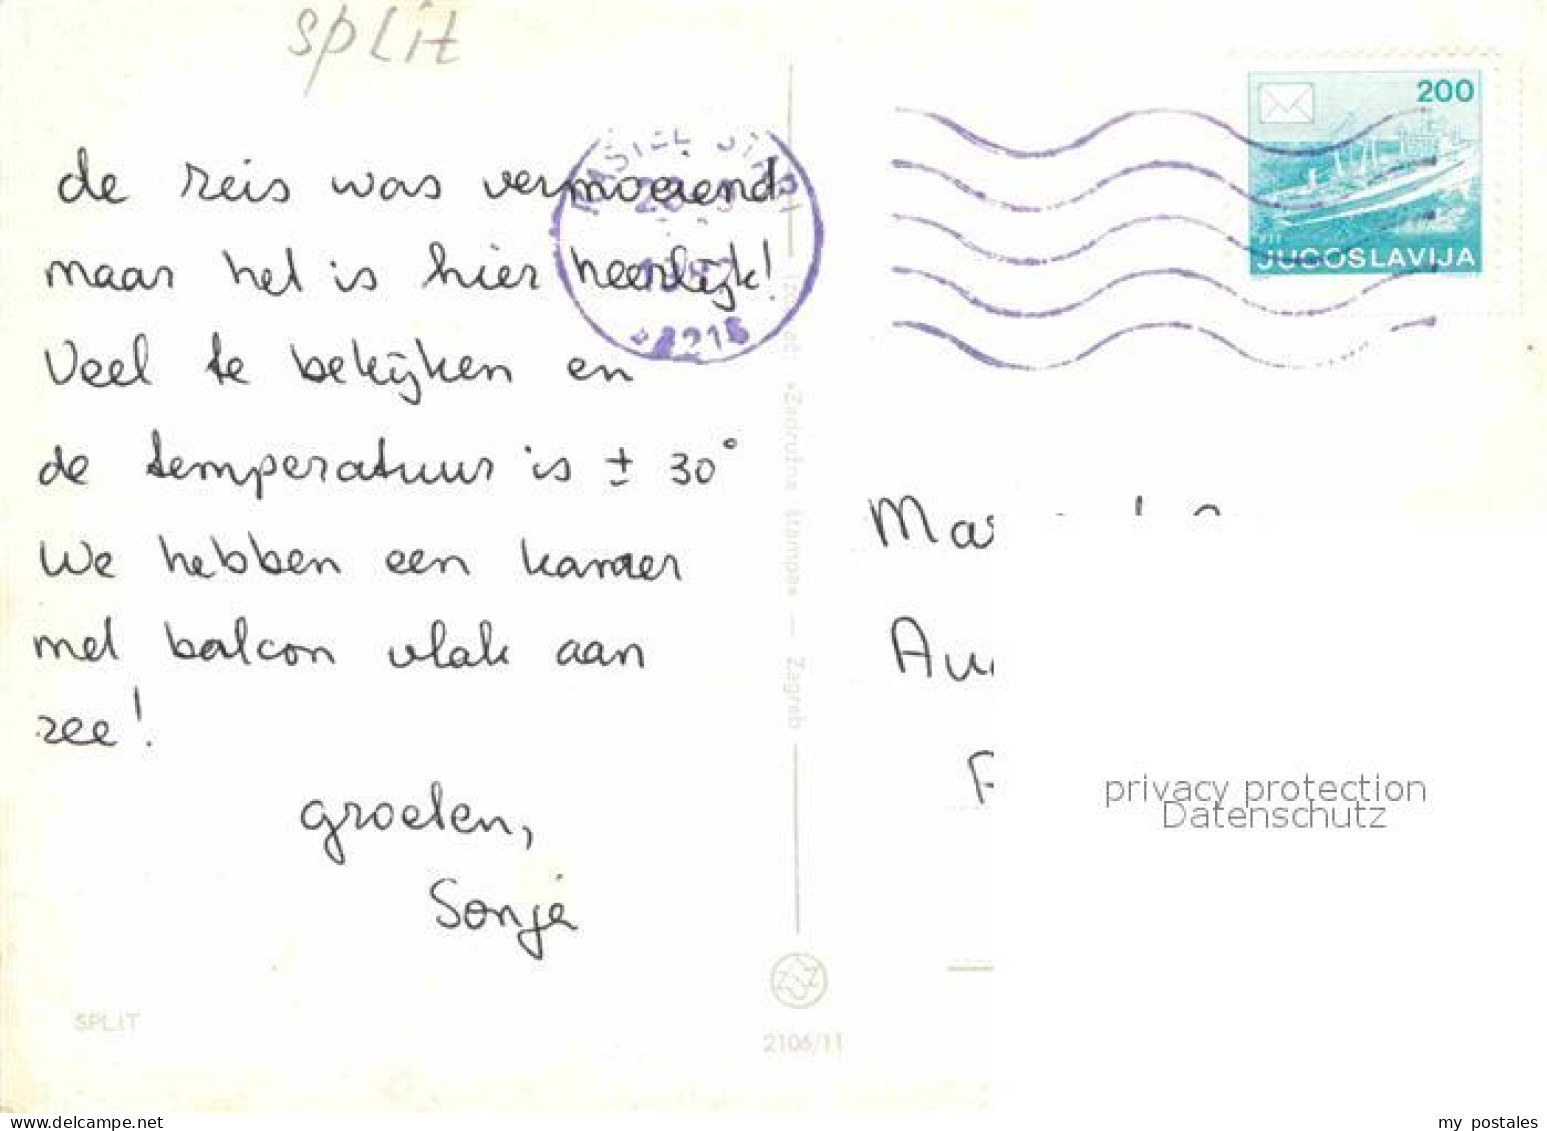 split
de reis was vermoeiend
maar het is hier heerlijk!
Veel te bekijken en
de temperatuur is ± 30°
We hebben een kamer
met balcon vlak aan
zee!
groeten,
Sonja
SPLIT
200
JUGOSLAVIJA
Izdat. »Zadružna štampa« — Zagreb
2106/11
privacy protection
Datenschutz
my postales